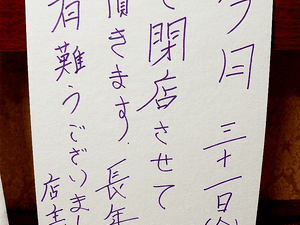 今月三十一日(
で閉店させて
頂きます.長年
有難うございまし
店主